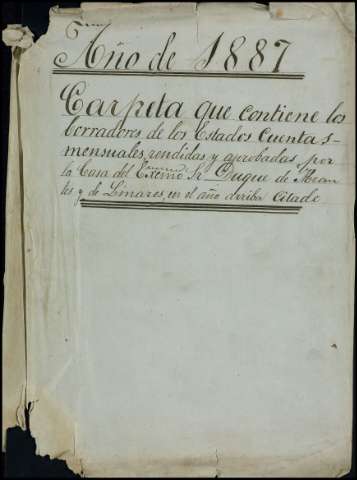 Año de 1887
Carpeta que contiene los
borradores de los Estados Cuentas-
mensuales, rendidas y aprobadas, por
la Casa del Excmo. Sr. Duque de Abran-
tes y de Linares, en el año arriba Citado